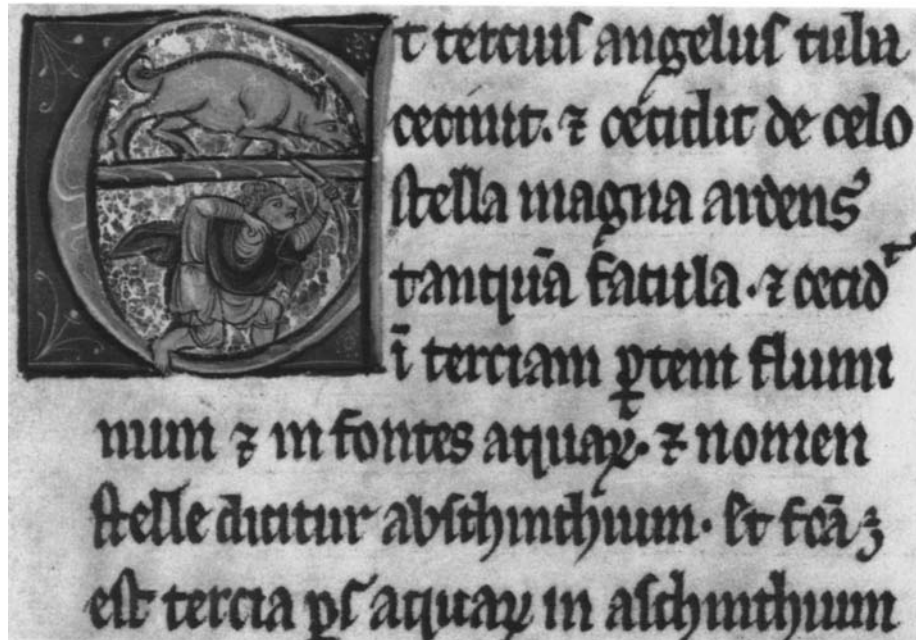 t tercius angelus tuba
cecinit. ⁊ cecidit de celo
stella magna ardens
tanquā facula. ⁊ cecidᵗ
ī terciam ꝑtem flumi
num ⁊ in fontes aquaꝝ. ⁊ nomen
stelle dicitur abschinthium. Et fcā ꝫ
est tercia ps aquaꝝ in aschinthium